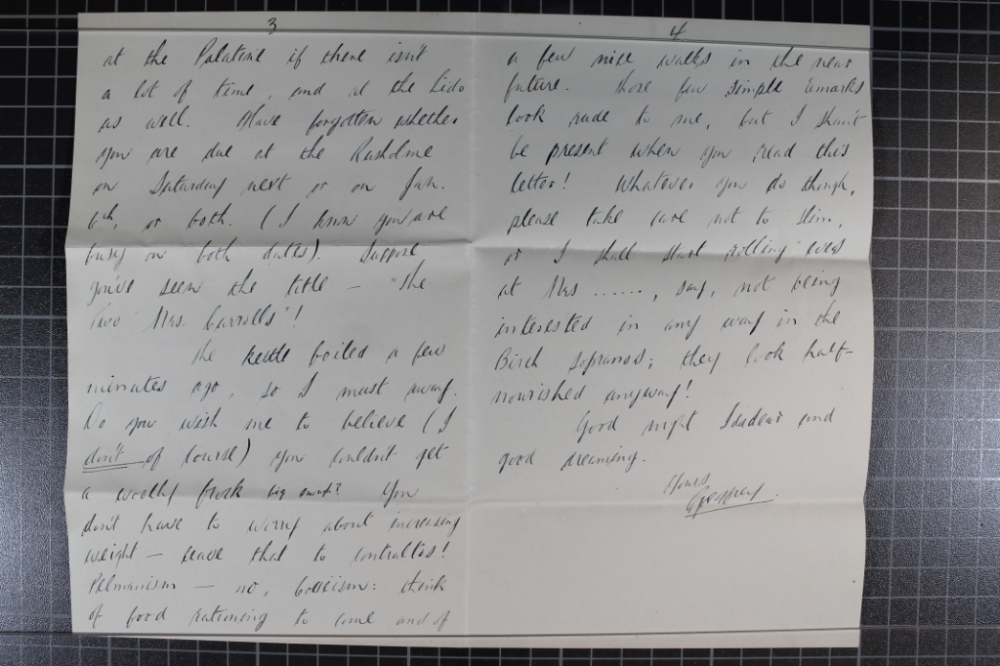 3
at the Palatine if there isn't
a lot of time, and at the Lido
as well. Have forgotten whether
you are due at the Rusholme
on Saturday next or on Jan.
6th, or both. (I know you are
busy on both dates). Suppose
you've seen the title — "The
Two Mrs. Carrolls"!
The kettle boiled a few
minutes ago, so I must away.
Do you wish me to believe (I
don't of course) you couldn't get
a woolly frock big enuf? You
don't have to worry about increasing
weight — leave that to contraltos!
Pelmanism — no,
of food rationing to come and of
4
a few nice walks in the near
future. Those few simple remarks
look rude to me, but I shan't
be present when you read this
letter! Whatever you do though,
please take care not to slim,
or I shall start rolling eyes
at Mrs ......, say, not being
interested in any way in the
Birch sopranos; they look half-
nourished anyway!
Good night and
good dreaming.
Yours
Geoffrey.